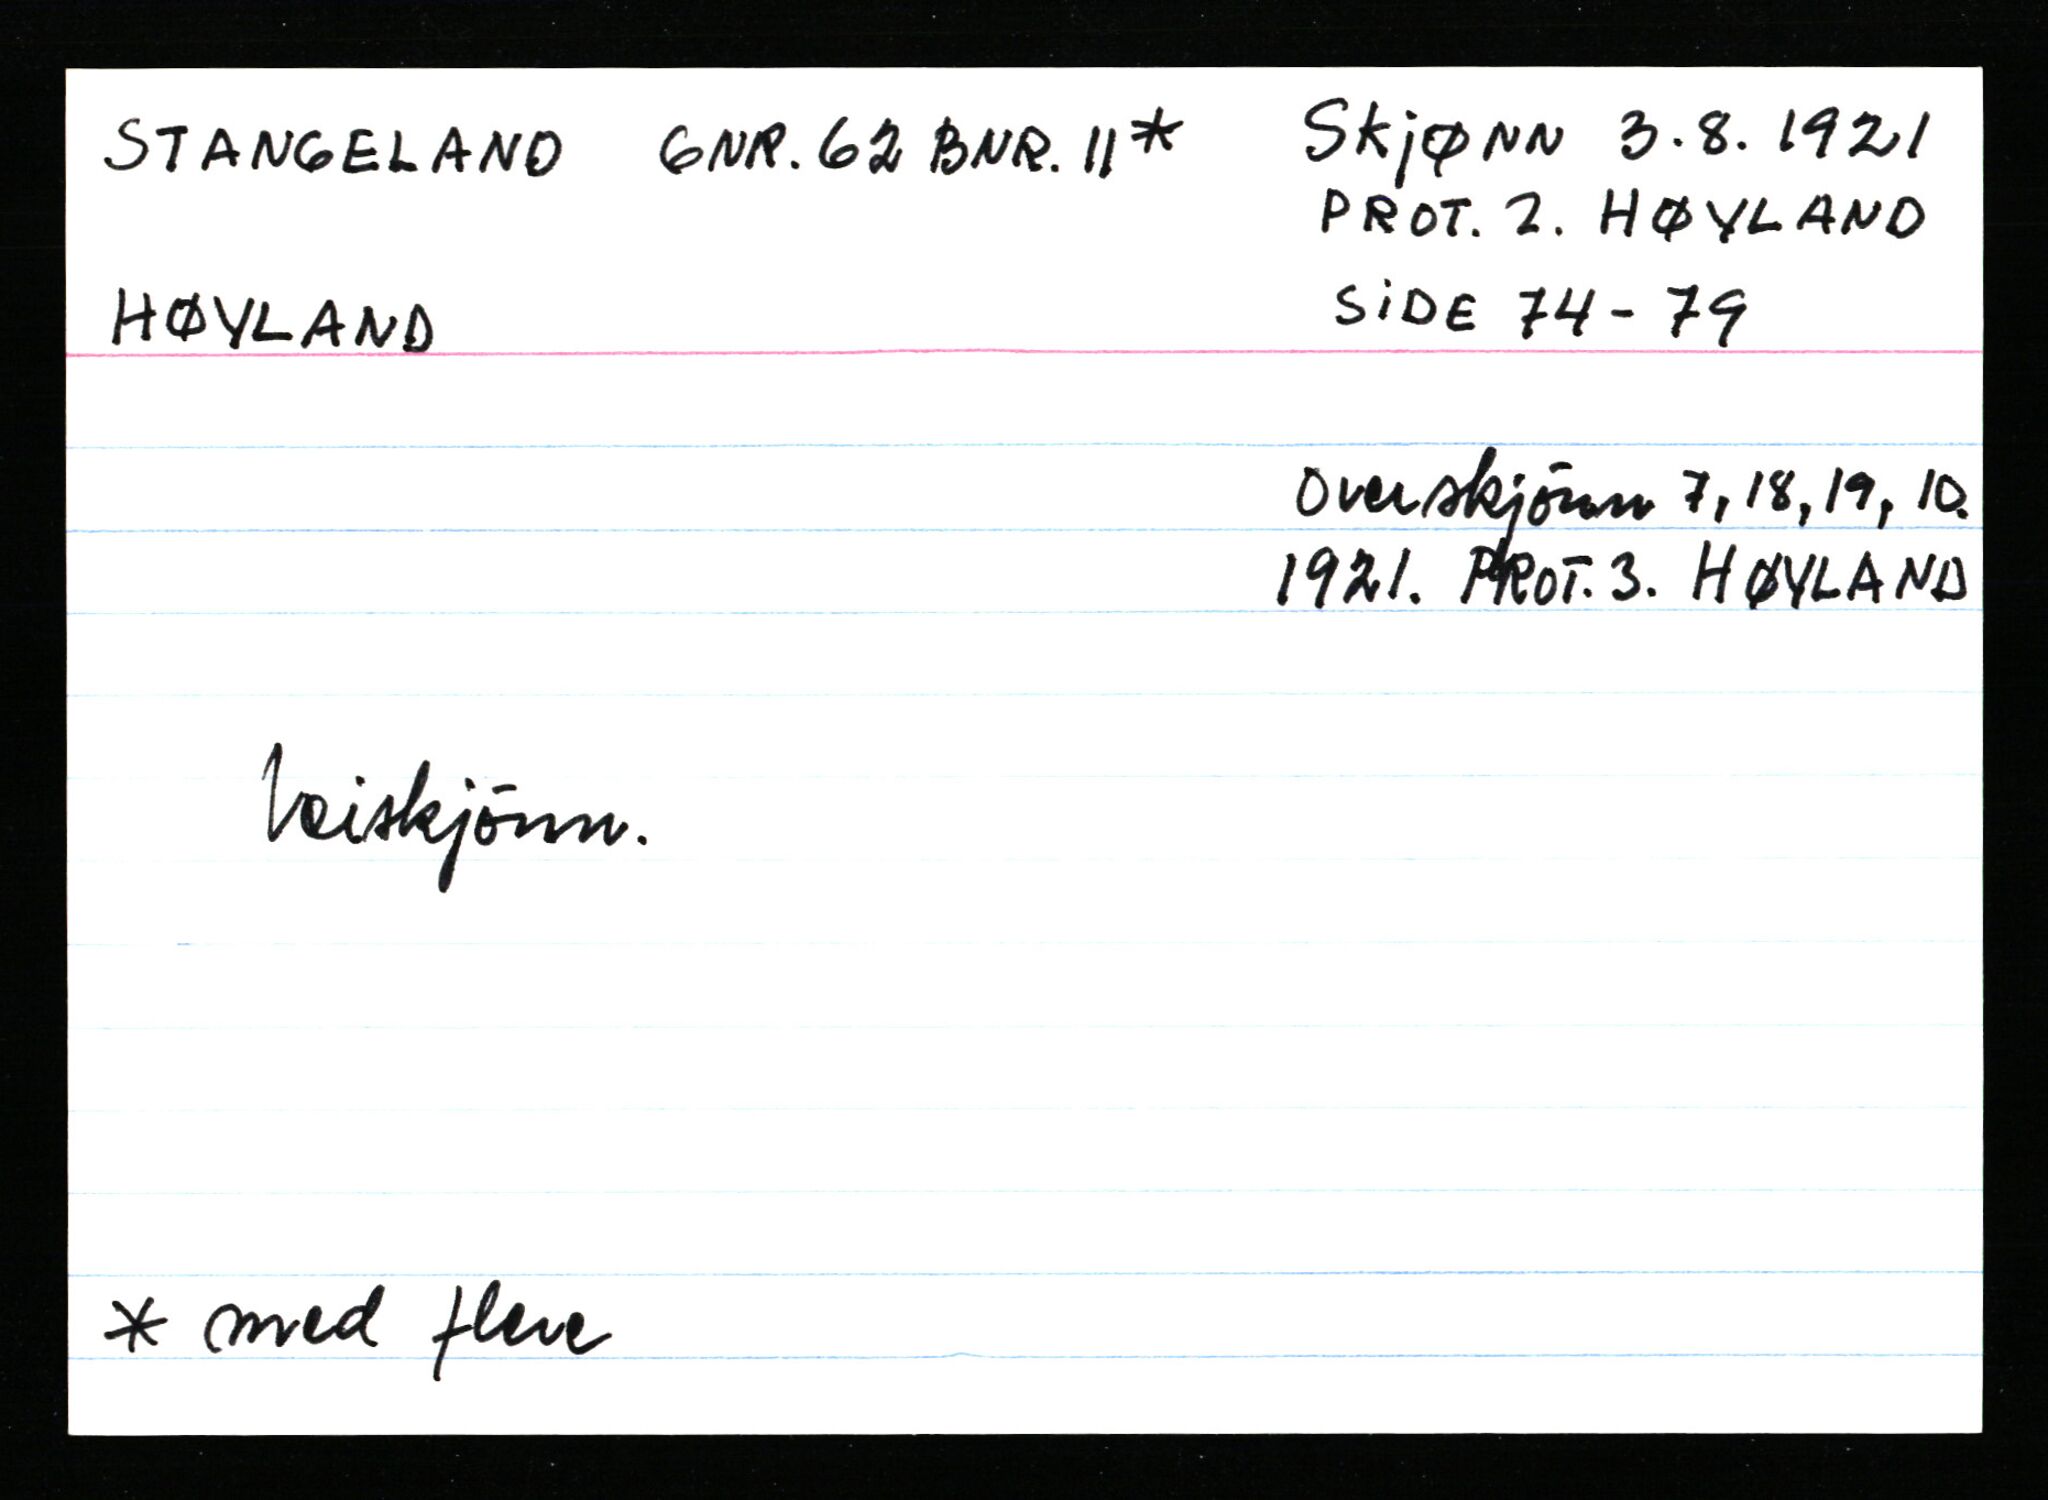 STANGELAND GNR. 62 BNR. 11* Skjønn 3.8.1921
PROT. 2. HØYLAND
HØYLAND SiDE 74-79
Overskjönn 7, 18, 19, 10.
1921. PROT. 3. HØYLAND
Veiskjönn.
* med flere